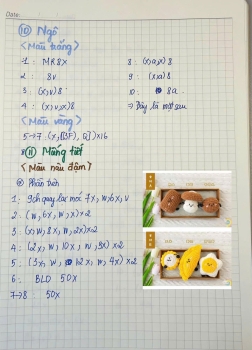 Date:
⑩ Ngô
<Màu trắng>
1 : MR8X
2 : 8v
3 : (x,v)8
4 : (x,v,x)8
8 : (x,a,x)8
9 : (x,a)8
10 : 8a.
→ Đây là mặt sau
<Màu vàng>
5→7
⑪ Măng tiết
<Màu nâu đậm>
Phần trên
2 : (w, 6x, w, x)x2
3 : (x, w, 8x, w, 2x)x2
4 : (2x, w, 10x, w, 3x)x2
5 : (3x, w, 12x, w, 4x)x2
6 : BLO 50X
7→8 : 50X